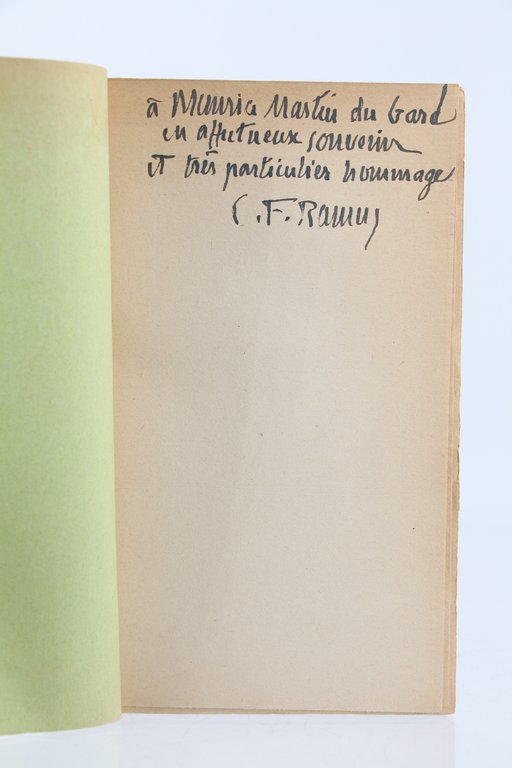 à Maurice Martin du Gard
en affectueux souvenir
et très particulier hommage
C. F. Ramuz